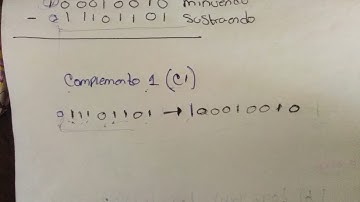 00010010 minuendo
- 01110 1101 Sustraendo
Complemento 1 (C1)
011101101 → 100010010